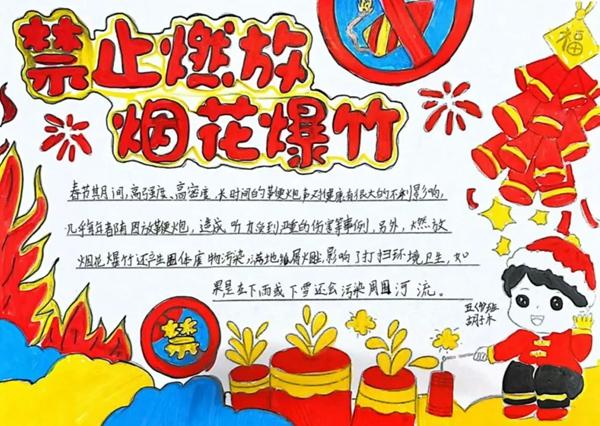 禁止燃放
烟花爆竹
福
春节期间,高强度、高密度、长时间的鞭炮声对健康有很大的不利影响,
几乎每年都有因放鞭炮,造成听力受到严重的伤害等事例,另外,燃放
烟花爆竹还产生固体废物污染,满地纸屑烟尘影响了打扫环境卫生,如
果是在下雨或下雪还会污染周围河流。